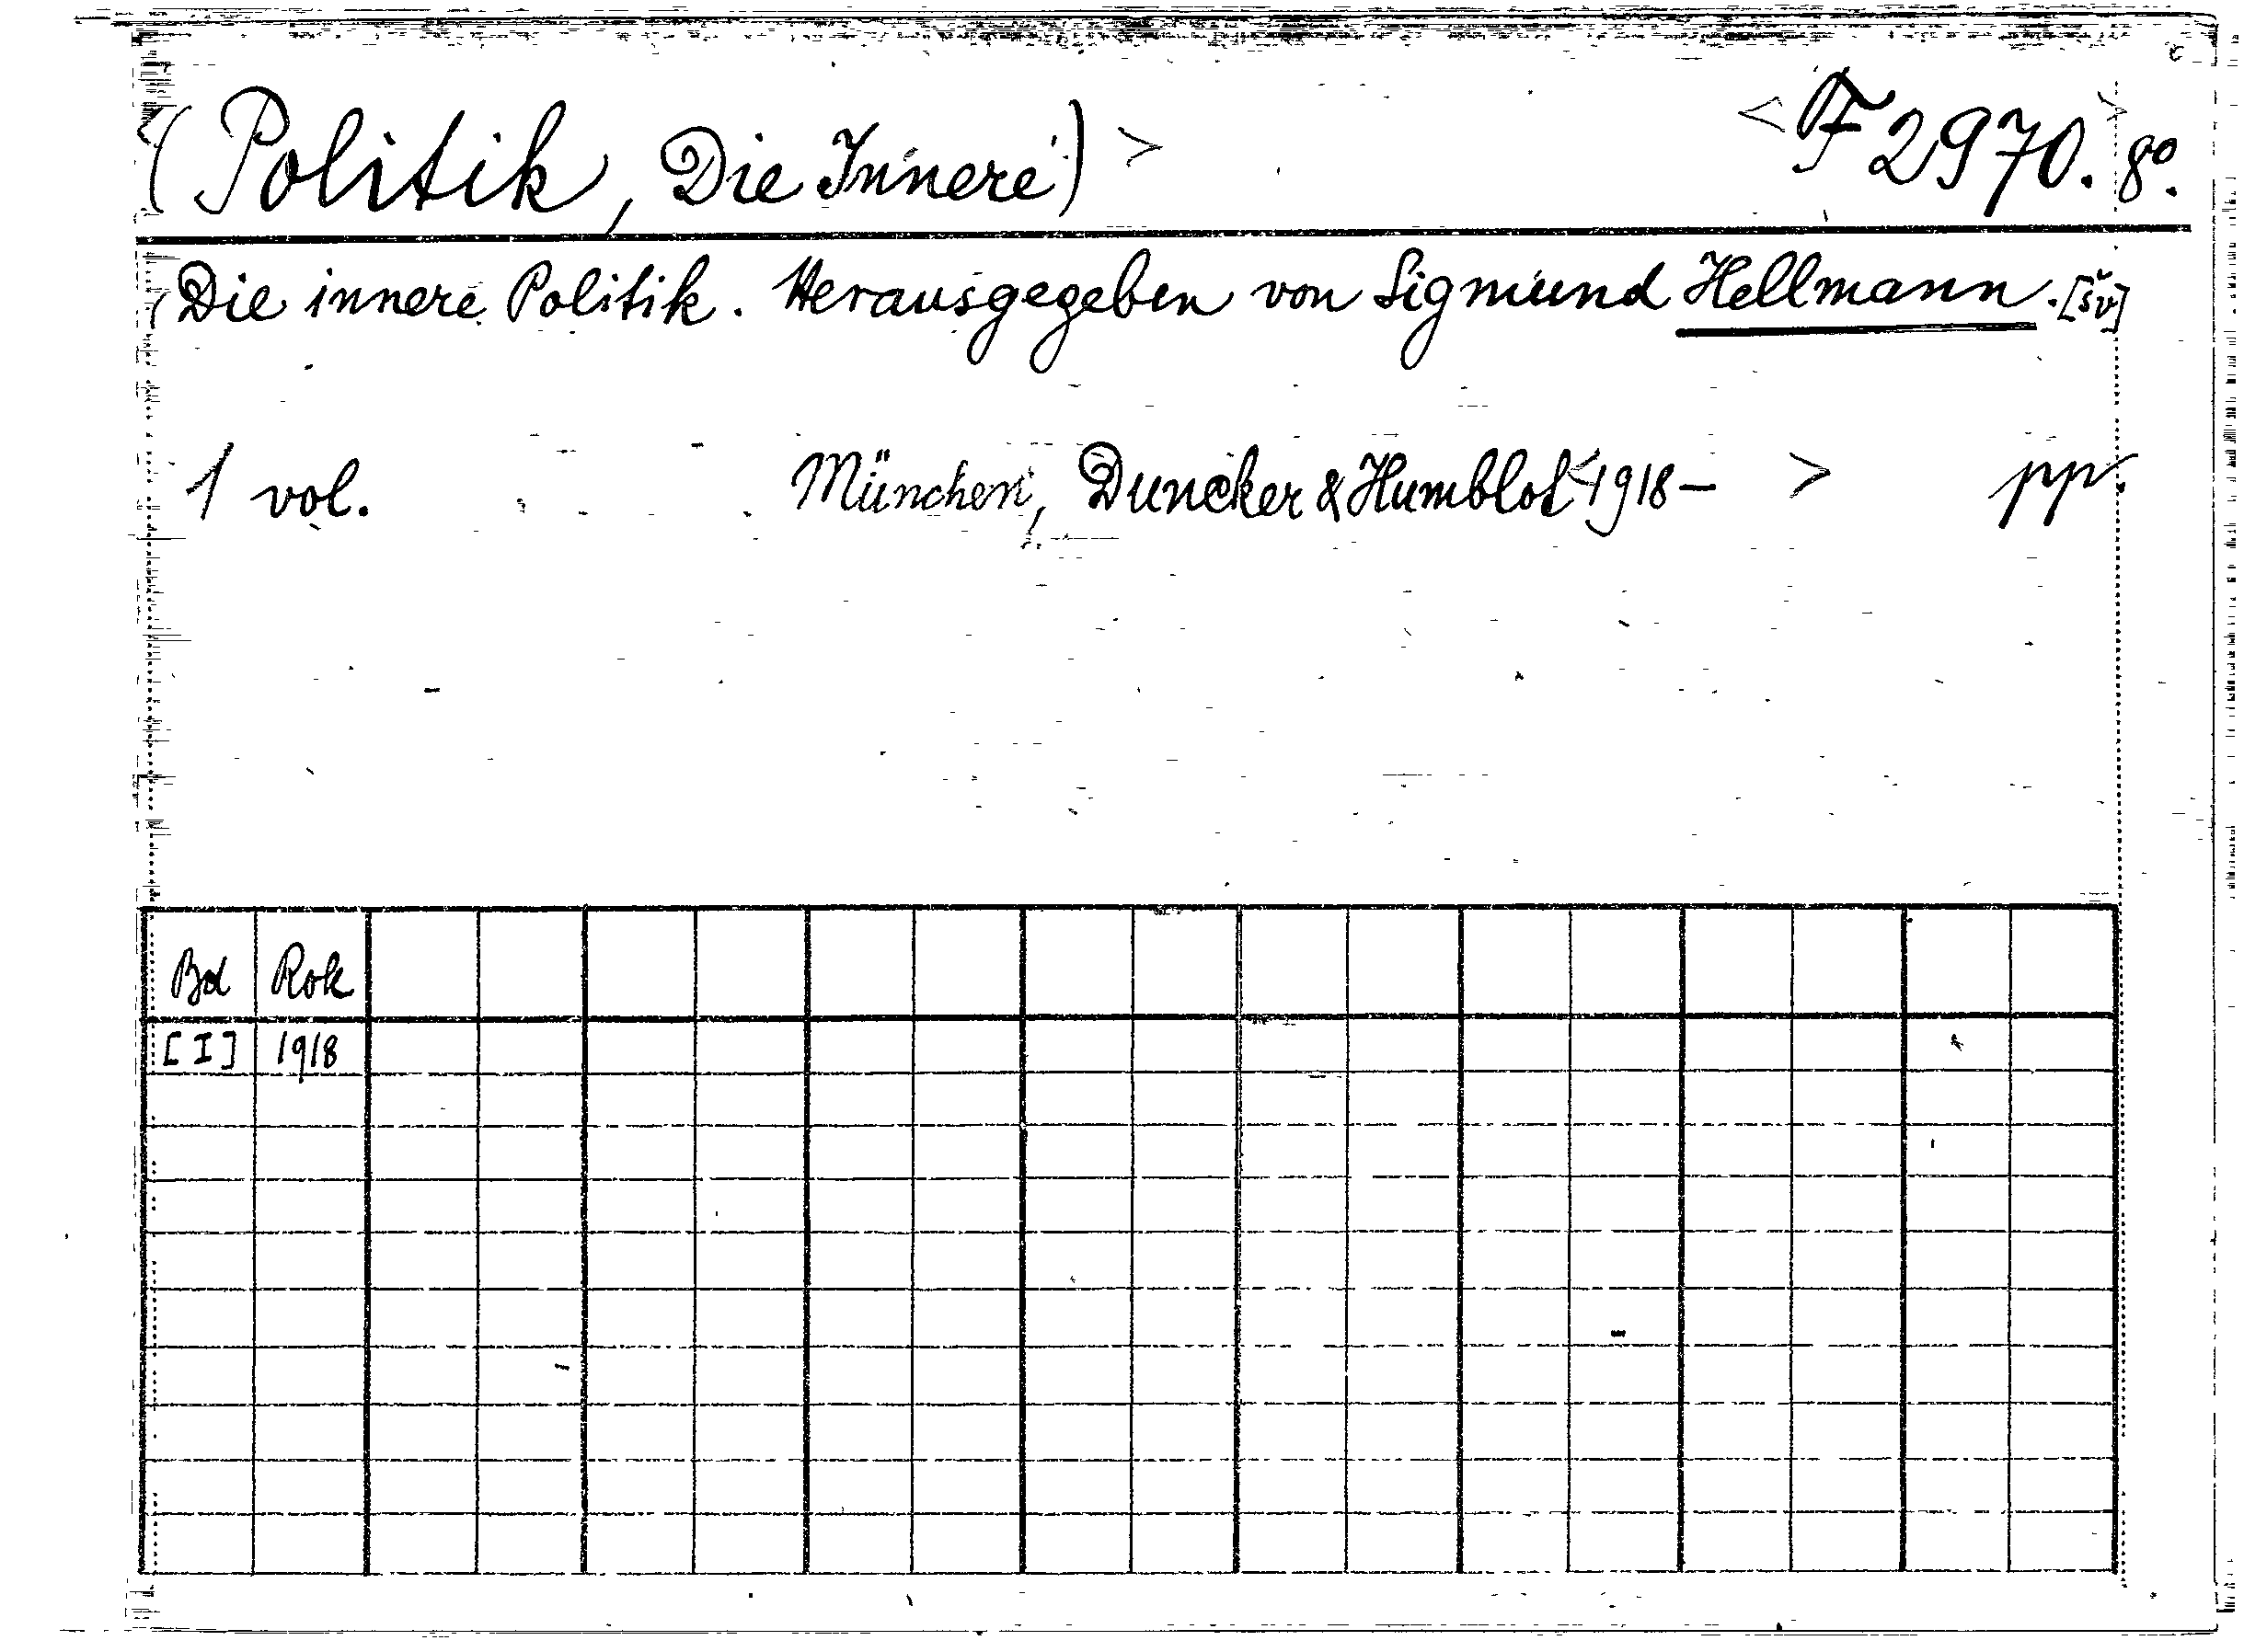 <(Politik, Die Innere)> <F 2970. 8º.>
Die innere Politik. Herausgegeben von Sigmund Hellmann. [šv]
1 vol. München, Duncker & Humblot <1918– > pp.
Bd Rok
[I] 1918